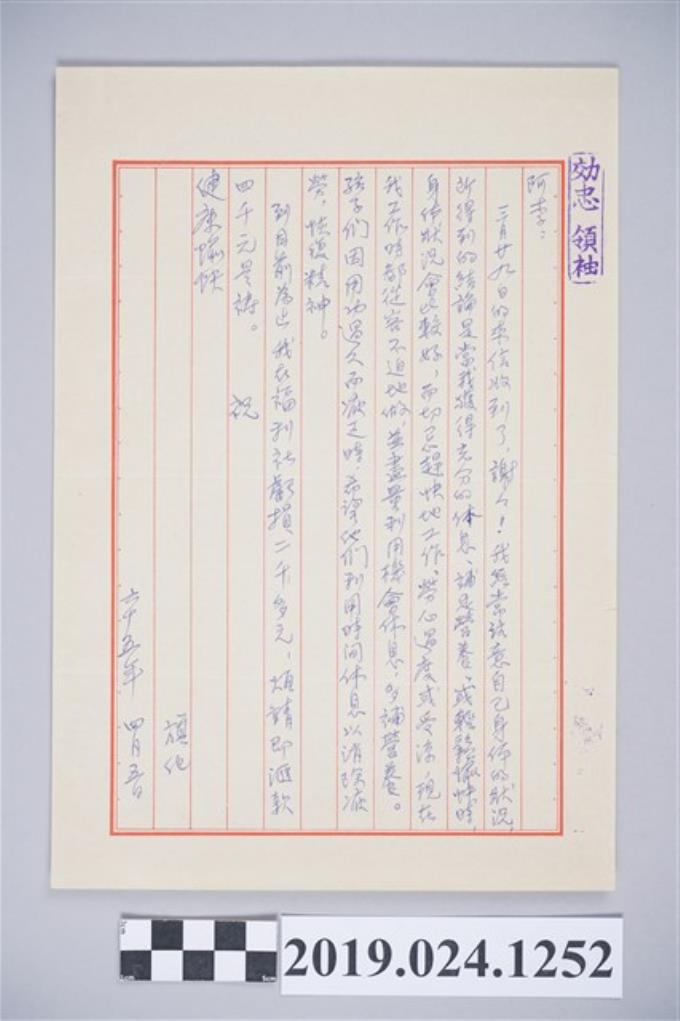 効忠 領袖
阿李:
三月廿九日的來信收到了,謝々!我經常注意自己身体的狀況,
所得到的結論是當我獲得充分的休息、補足營養、或輕鬆愉快時,
身体狀況會比較好,而切忌趕快地工作、勞心過度或受涼,現在
我工作時都從容不迫地做,並盡量利用機會休息,多補營養。
孩子們因用功過久而疲乏時,希望他們利用時間休息以消除疲
勞,恢復精神。
到目前為止我在福利社虧損二千多元,煩請即滙款
四千元是禱。 祝
健康愉快
旗化
六十五年 四月五日
2019.024.1252